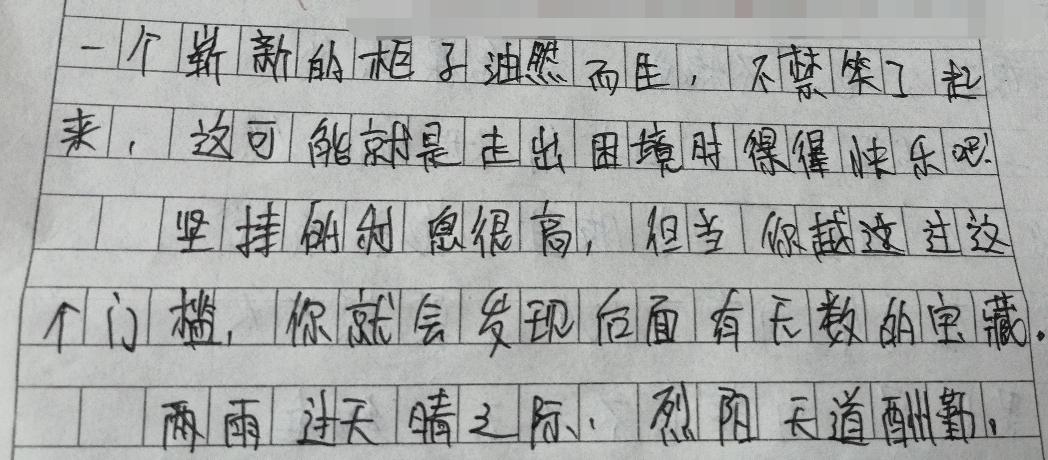 一个崭新的柜子油然而生，不禁笑了起
来，这可能就是走出困境时得得快乐吧！
坚持的利息很高，但当你越过过这
个门槛，你就会发现后面有无数的宝藏。
两雨过天晴之际，烈阳天道酬勤，